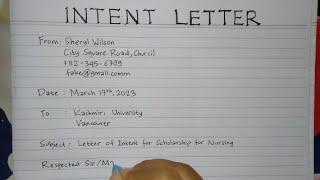 INTENT LETTER
From: Sheryl Wilson
City Square Road, Churcil
+112-345-6789
fake@gmail.comm
Date : March 17th, 2023
To : Kashmiri University
Vancouver
Subject : Letter of Intent for Scholarship for Nursing
Respected Sir/Ma